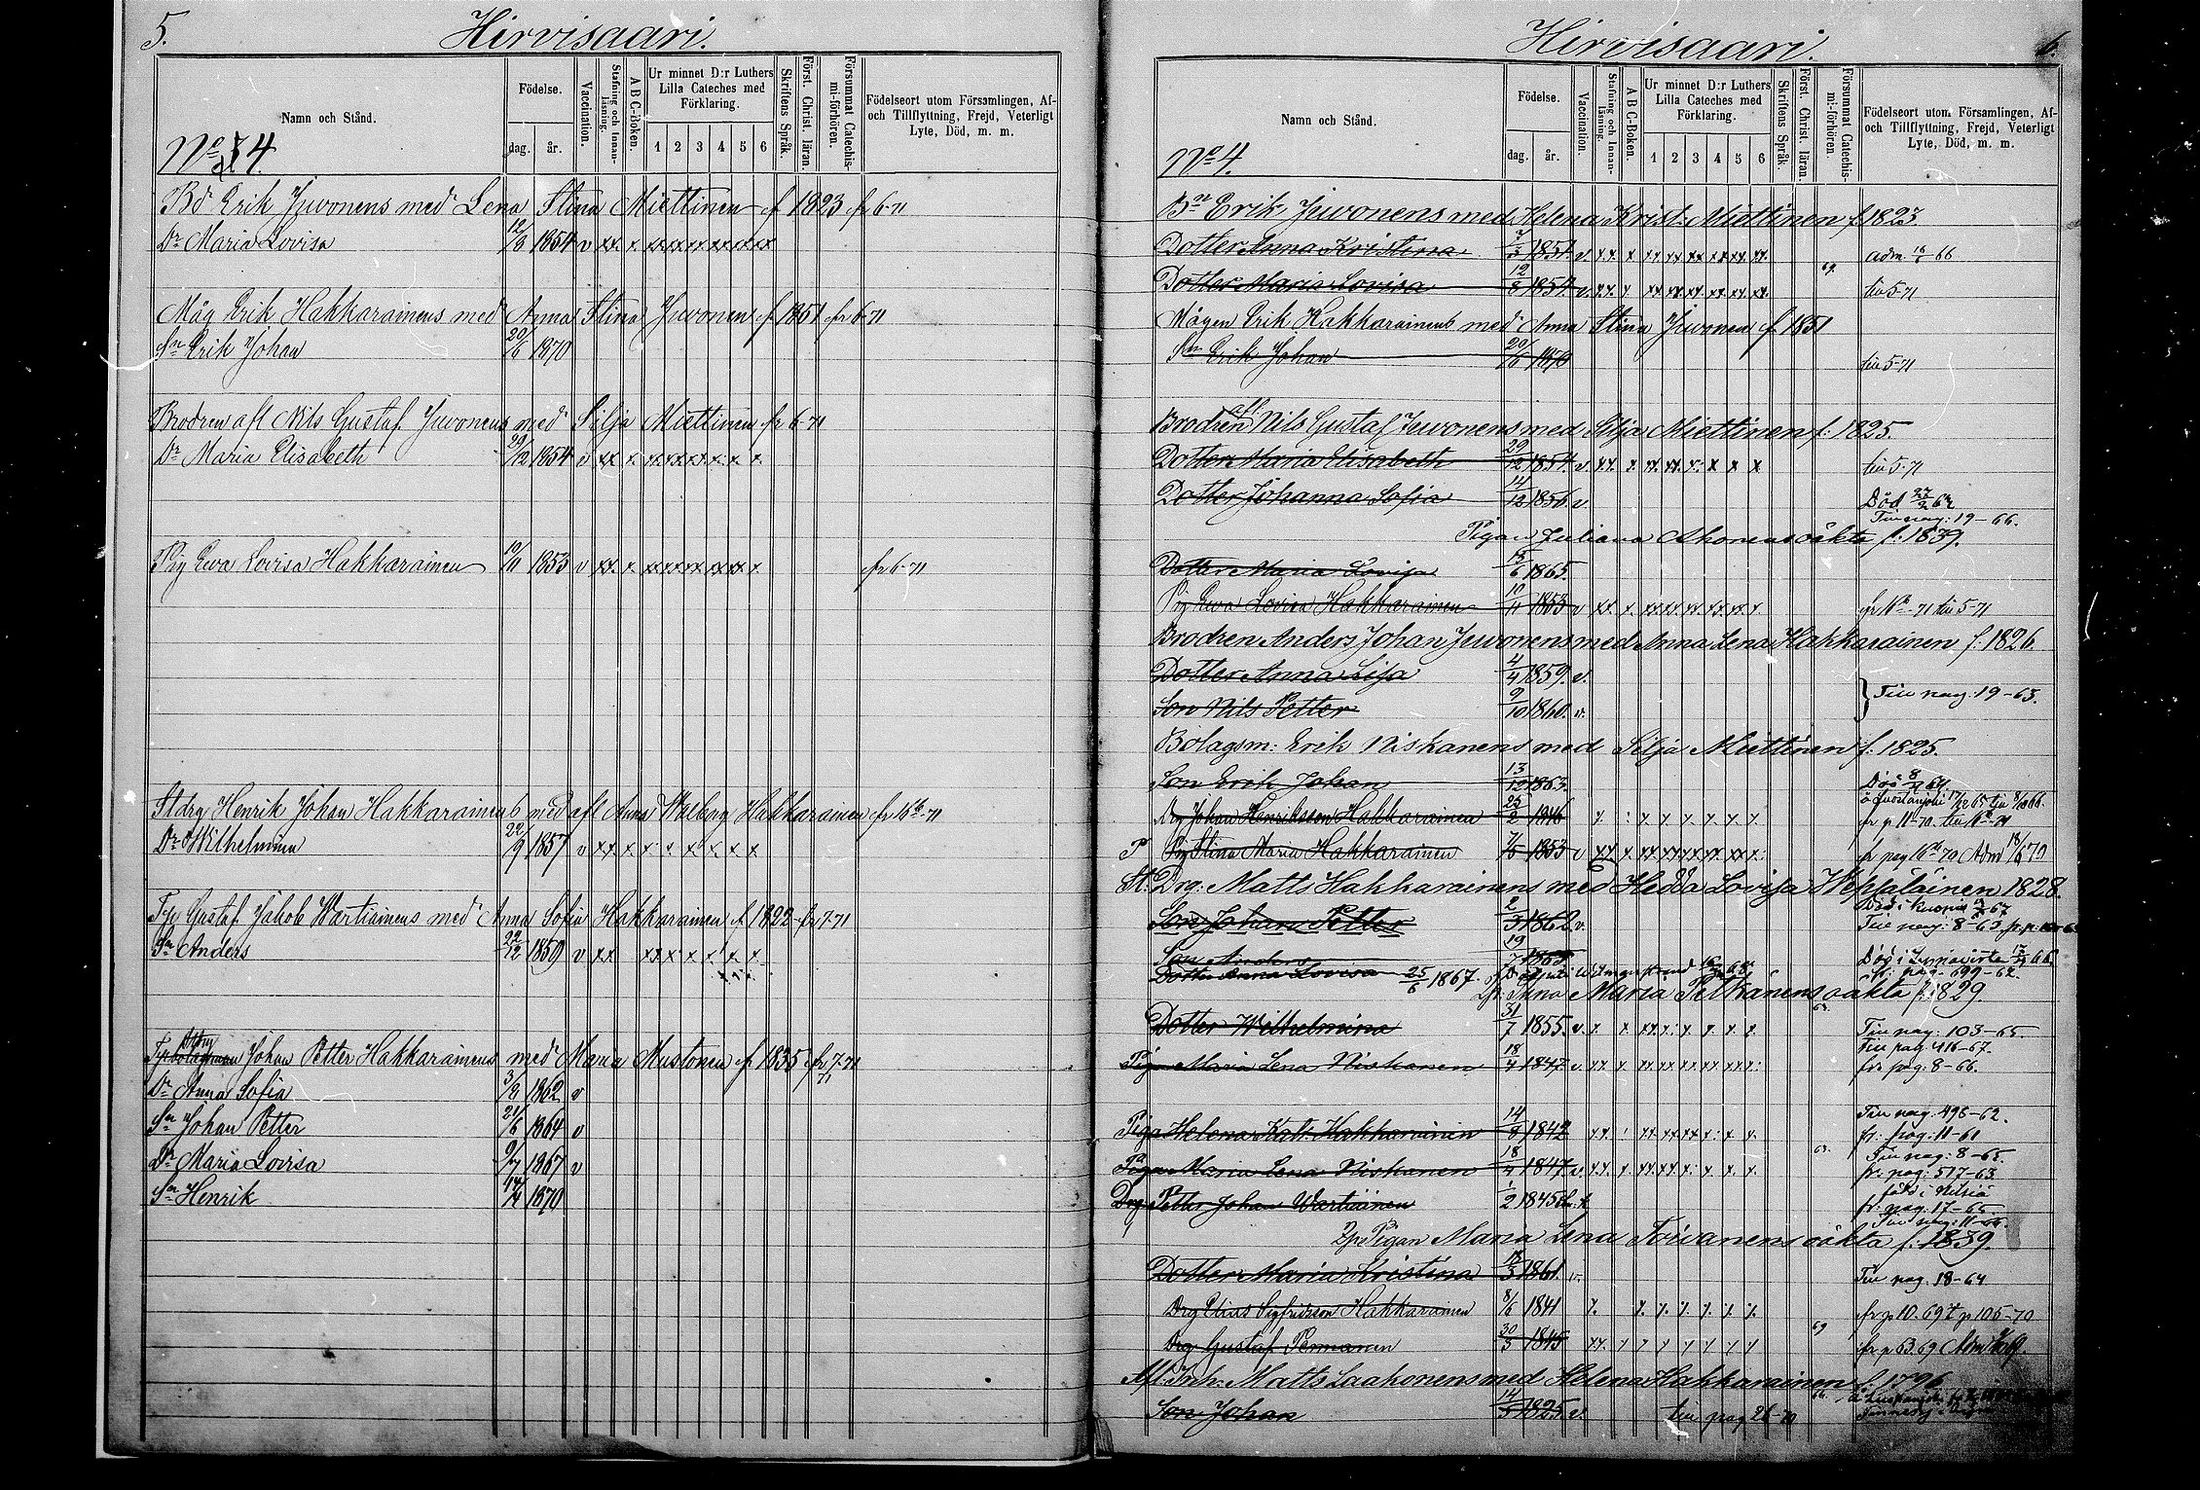 5.
Hirvisaari.
Namn och Stånd.
Födelse.
dag. år.
Vaccination.
Stafning och Innanläsning.
A B C-Boken.
Ur minnet D:r Luthers Lilla Cateches med Förklaring.
1 2 3 4 5 6
Skriftens Språk.
Först. Christ. läran.
Försummat Catechismi-förhören.
Födelseort utom Församlingen, Af- och Tillflyttning, Frejd, Veterligt Lyte, Död, m. m.
No 4
Bd Erik Juvonens med Lena Stina Miettinen f 1823 fr 6-71
Dr Maria Lovisa 12/8 1854 v xx x xx xx xx xx xx xx
Måg Erik Hakkarainens med Anna Stina Juvonen f. 1851 fr 6-71
Sn Erik Johan 20/6 1870
Brodren afl Nils Gustaf Juvonens med Silja Miettinen fr 6-71
Dr Maria Elisabeth 29/12 1854 v xx x xx xx xx x x x
Pig Ewa Lovisa Hakkarainen 10/11 1853 v xx x xx xx xx xx xx x fr 6-71
Stdrg Henrik Johan Hakkarainens med afl Anna Walborg Hakkarainen
Dr Wilhelmina 22/9 1857 v xx x x x x x x x
Gustaf Jakob Wartiainens med Anna Sofia Hakkarainen f. 1822 fr 7-71
Sn Anders 22/12 1859 v xx xx x x x x x
Johan Petter Hakkarainens med Maria Mustonen f. 1835 fr 7-71
Dr Anna Sofia 1862 v
Sn Johan Petter 21/6 1864 v
Dr Maria Lovisa 9/7 1867 v
Sn Henrik 1870
Hirvisaari.
6.
Namn och Stånd.
Födelse.
dag. år.
Vaccination.
Stafning och Innanläsning.
A B C-Boken.
Ur minnet D:r Luthers Lilla Cateches med Förklaring.
1 2 3 4 5 6
Skriftens Språk.
Först. Christ. läran.
Försummat Catechismi-förhören.
Födelseort utom Församlingen, Af- och Tillflyttning, Frejd, Veterligt Lyte, Död, m. m.
No 4.
Bn Erik Juvonens med Helena Krist: Miettinen f. 1823.
Dotter Anna Kristina 1851. v. xx x xx xx xx xx xx xx
Dotter Maria Lovisa 12/8 1854. v. xx x xx xx xx x x xx till 5-71
Mågen Erik Hakkarainens med Anna Stina Juvonen f. 1851
Sn Erik Johan 20/6 1870 till 5-71
Brodren afl. Nils Gustaf Juvonens med Silja Miettinen f. 1825.
Dotter Maria Elisabeth 29/12 1854. v. xx x xx xx x x x x till 5-71
Dotter Johanna Sofia 14/12 1856 v. Död
Till pag: 19-66.
Pigan Juliana Ahonens oäkta f. 1839.
Dotter Maria Lovisa 1865.
Pig Ewa Lovisa Hakkarainen 10/11 1853 v xx x xx xx xx xx x x till 5-71
Brodren Anders Johan Juvonens med Anna Lena Hakkarainen f. 1826.
Dotter Anna Lisa 4/4 1859. v.
Son Nils Petter 9/10 1860. v. Till pag: 19-63.
Bolagsm: Erik Niskanens med Silja Miettinen f: 1825.
Son Erik Johan 13/12 1863.
Drg Johan Henriksson Hakkarainen 1846
P Pig Stina Maria Hakkarainen 1853
St: Drg: Matts Hakkarainens med Hedda Lovisa 1828.
Son Johan Petter 2/3 1862. v.
Son Anders
Dotter Anna Lovisa 25/6 1867.
Anna Maria Pitkänens oäkta f. 1829.
Dotter Wilhelmina 31/7 1855. v. Till pag: 103-65.
Till pag: 416-67.
Piga Maria Lena Niskanen 18/4 1847 v. xx x xx xx xx xx xx x fr: pag: 8-66.
Till pag. 498-62.
Piga Helena Kat: Hakkarainen 14/8 1842 fr: pag: 11-61
Till pag: 8-65.
Piga Maria Lena Niskanen 18/4 1847 v. fr: pag: 517-63.
född i Nilsiä
Drg Petter Johan Wartiainen 1/2 1845 fr: pag. 17-65.
Pigan Maria Lena Toivanens oäkta f: 1839.
Dotter Maria Kristina 1861. v. Till pag. 18-64
Drg Elias Sigfridson Hakkarainen 8/6 1841 fr p 10. 69 t p 105-70
Drg Gustaf 30/3 1845 fr p 63. 69
Afl Inh: Matts Laakonens med Helena Hakkarainen f. 1796
Son Johan 1825. v. till pag 26-70